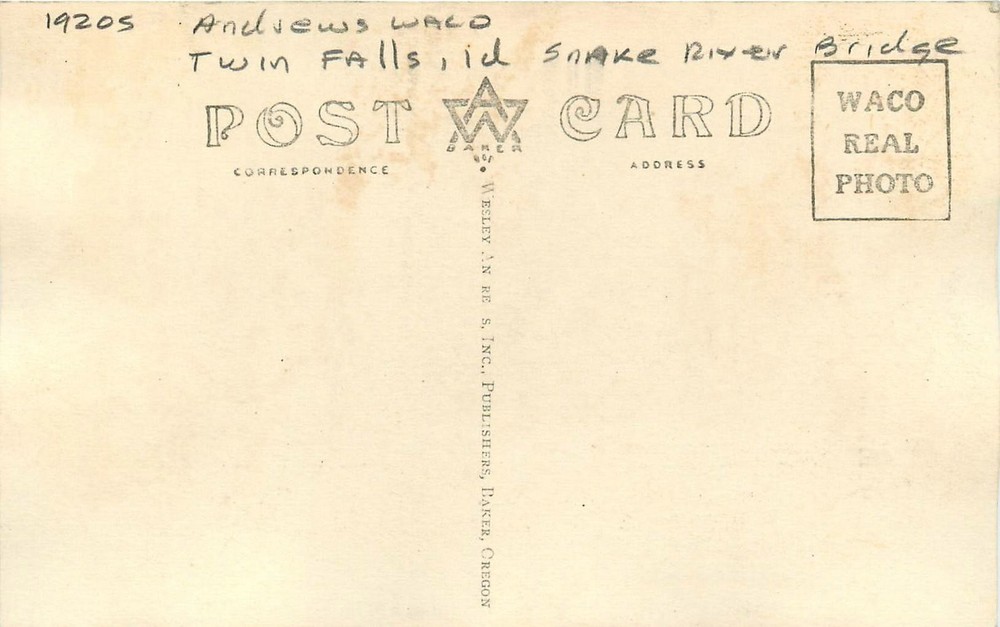 1920s Andrews WACO
Twin Falls, id Snake River Bridge
POST CARD
BAKER
CORRESPONDENCE
ADDRESS
WACO
REAL
PHOTO
WESLEY AN RE S, INC., PUBLISHERS, BAKER, OREGON